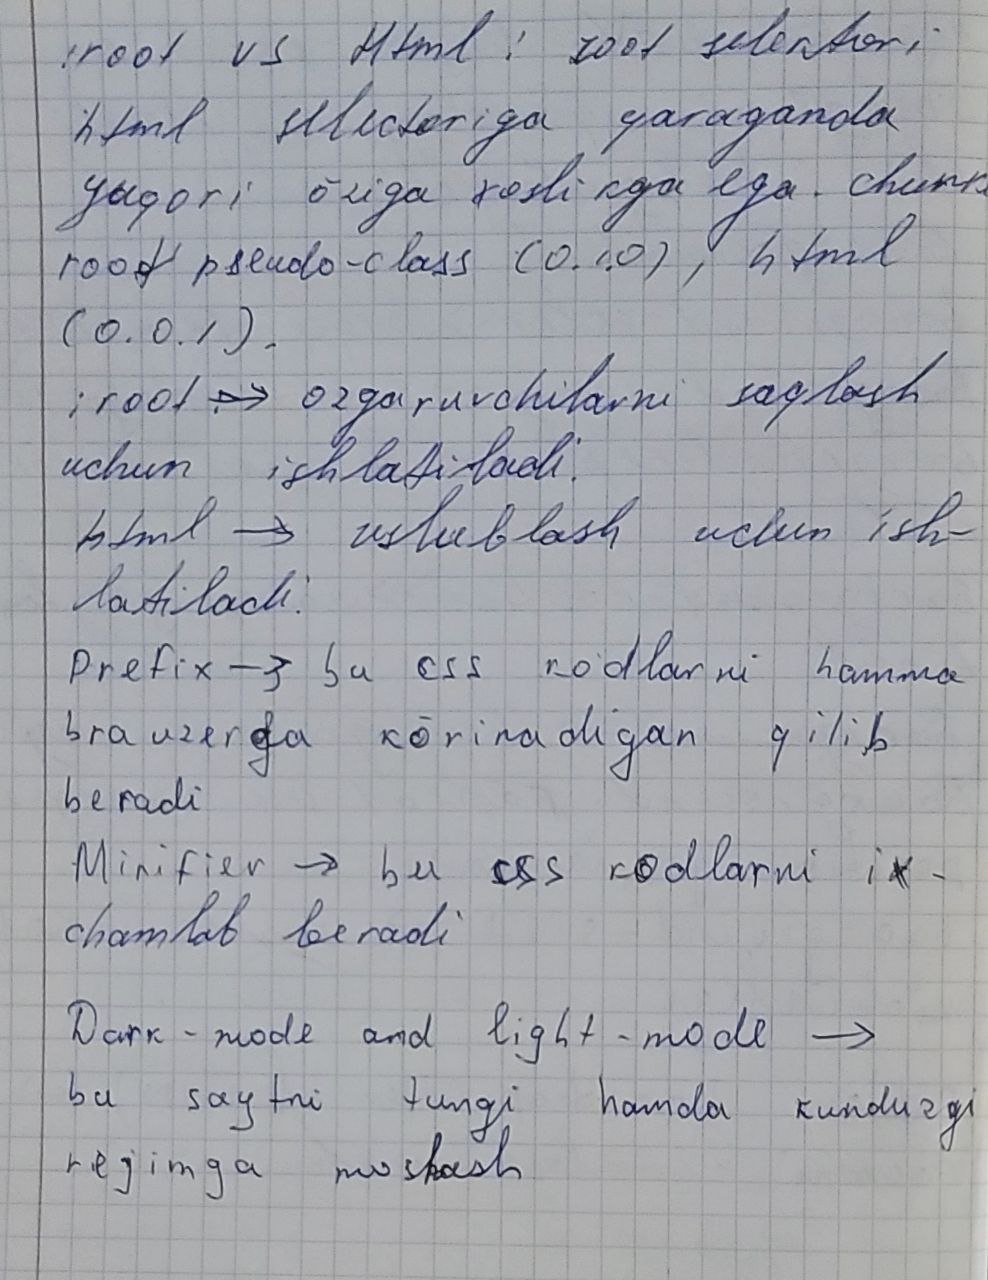 :root vs Html: root selektori
html selectoriga qaraganda
yuqori ōziga xoslikga ega. chunki
root pseudo-class (0.1.0), html
(0.0.1).
:root → ozgaruvchilarni saqlash
uchun ishlatiladi.
html → uslublash uchun ish-
latiladi.
Prefix → bu css kodlarni hamma
brauzerga kōrinadigan qilib
beradi
Minifier → bu css kodlarni ix-
chamlab beradi
Dark-mode and light-mode →
bu saytni tungi hamda kunduzgi
rejimga moslash